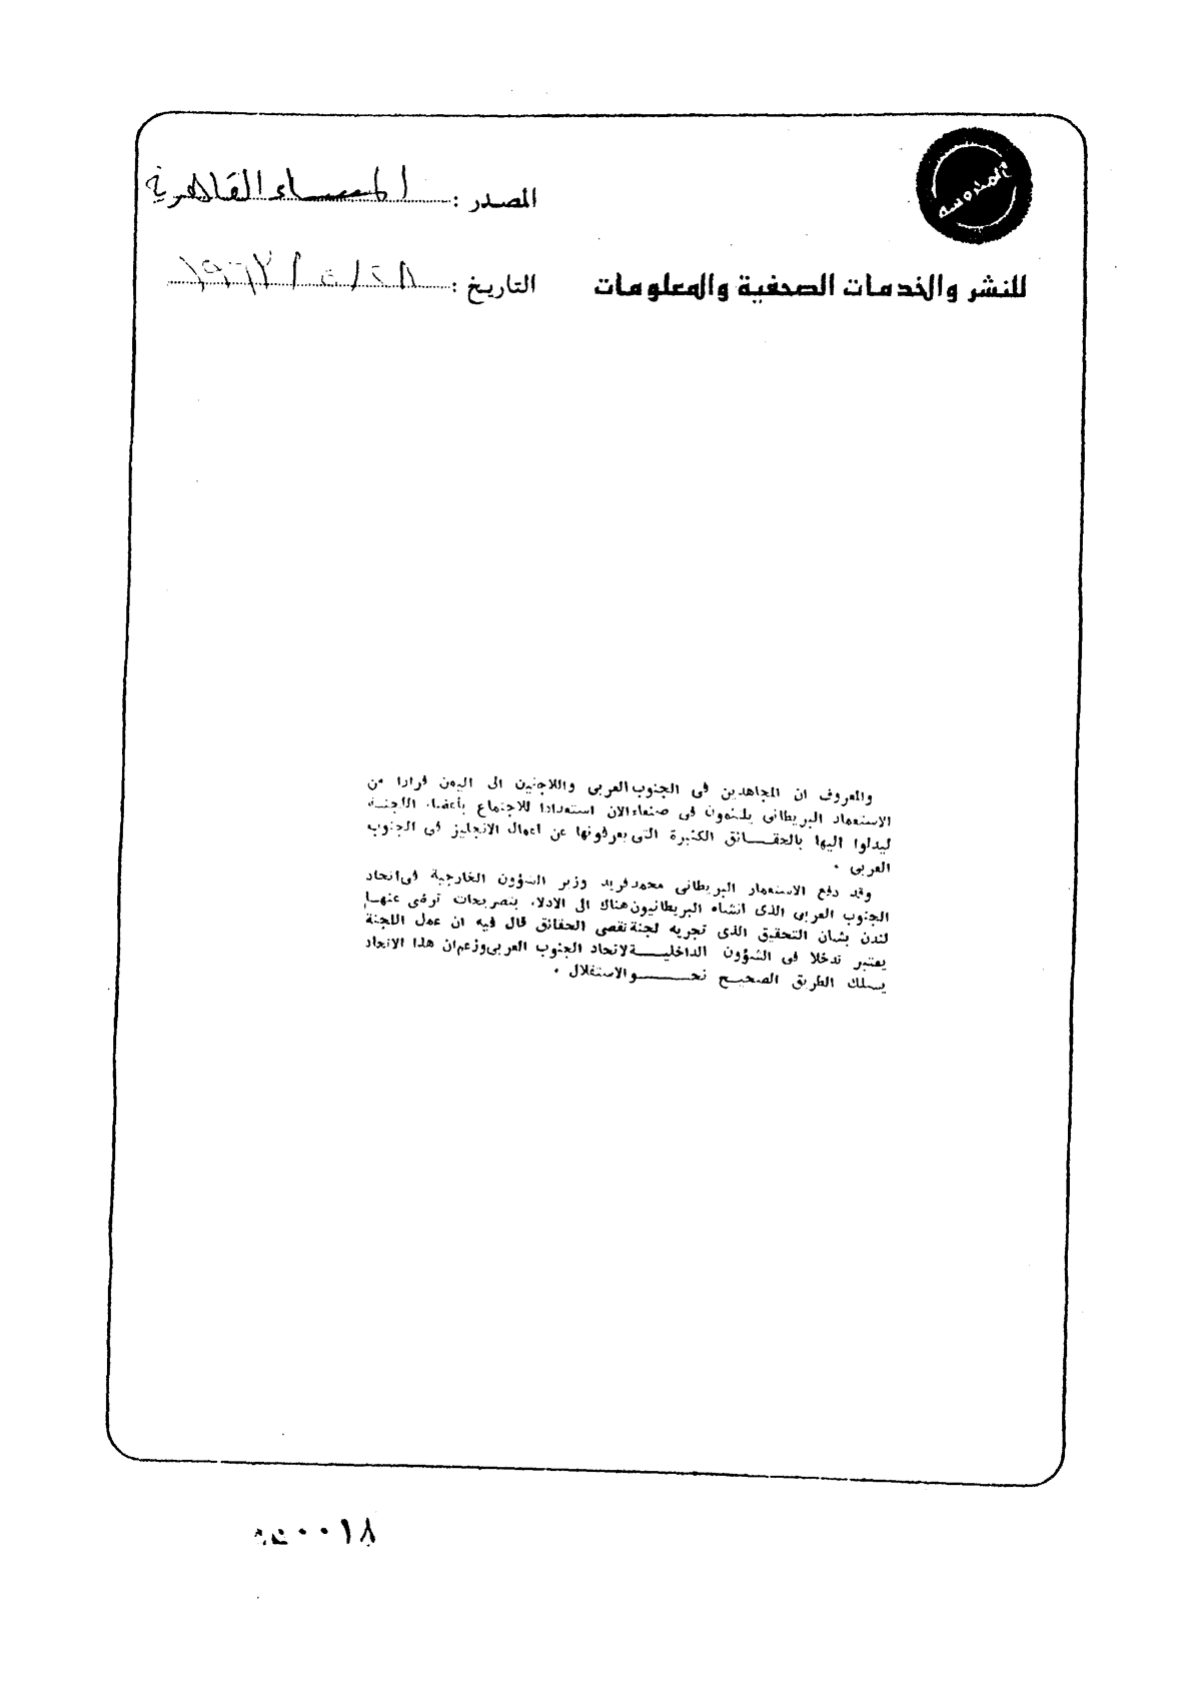 المصدر : المساء القاهرية
للنشر والخدمات الصحفية والمعلومات
التاريخ : ٢٨ / ٥ /
والمعروف ان المجاهدين فى الجنوب العربى واللاجئين الى اليمن فرارا من
الاستعمار البريطانى يلتئمون فى صنعاء الآن استعدادا للاجتماع بأعضاء اللجنة
ليدلوا اليها بالحقــائق الكثيرة التى يعرفونها عن اعمال الانجليز فى الجنوب
العربى .
وقد دفع الاستعمار البريطانى محمد فريد وزير الشؤون الخارجية فى اتحاد
الجنوب العربى الذى انشاه البريطانيون هناك الى الادلاء بتصريحات ترضى عنهــا
لندن بشان التحقيق الذى تجريه لجنة تقصى الحقائق قال فيه ان عمل اللجنة
يعتبر تدخلا فى الشؤون الداخليـــة لاتحاد الجنوب العربى وزعم ان هذا الاتحاد
يسلك الطريق الصحيح نحـــــو الاستقلال .